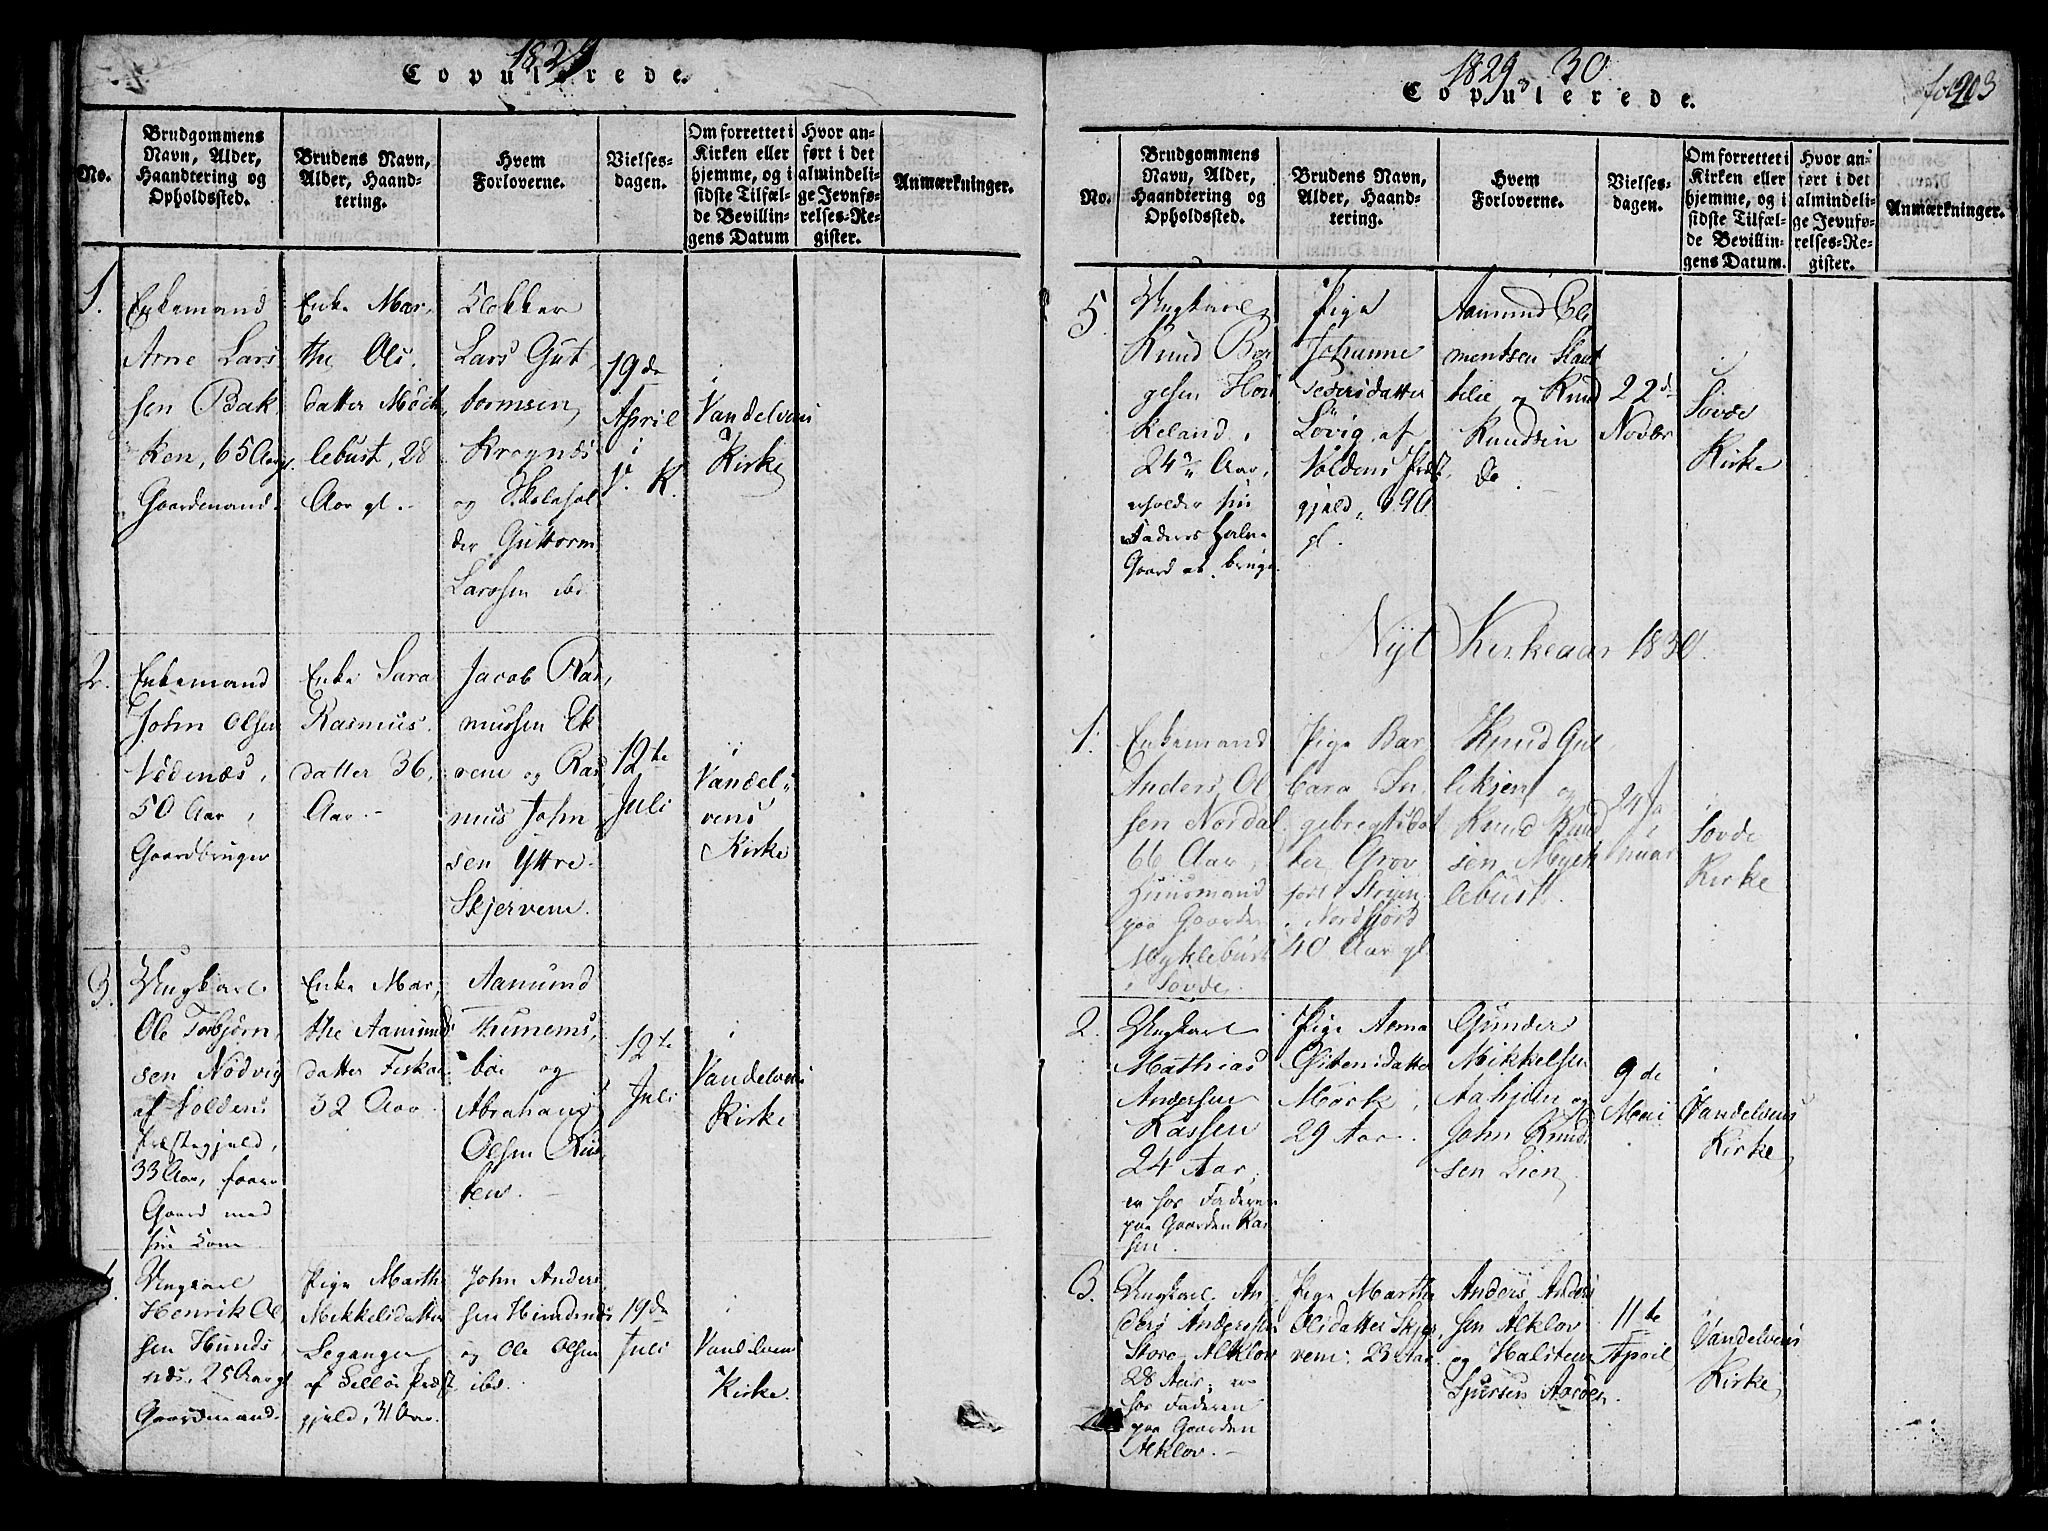 1829
Copulerede.
No.
Brudgommens
Navn, Alder,
Haandtering og
Opholdssted.
Brudens Navn,
Alder, Haand-
tering.
Hvem
Forloverne.
Vielses-
dagen.
Om forrettet i
Kirken eller
hjemme, og i
sidste Tilfæl-
de Bevillin-
gens Datum
Hvor an-
ført i det
almindeli-
ge Jevnfø-
relses-Re-
gister.
Anmærkninger.
1.
Enkemand
Arne Lars
sen Bak
ken, 65 Aar gl.
Gaardmand.
Enke Mar,
the Ols
datter Möck
lebust, 28
Aar gl.
Klokker
Lars Gut
tormsen
Kragnæs
og Skolehol
der Guttorm
Larssen ibd
19de
April
i
J. K.
i
Vandelvens
Kirke
2.
Enkemand
John Olsen
Vedenæs,
50 Aar,
Gaardbruger
Enke Sara
Rasmus
datter 36,
Aar.
Jacob Ras,
mussen Ek
rem og Ras
mus John
sen Yttre
Skjervem.
12te
Juli
i
Vandel,
vens
Kirke
3.
Ungkarl
Ole Torbjörn,
sen Nödvig
af Voldens
Præstegjeld,
33 Aar, faaer
Gaard med
sin Kone
Enke Mar,
the Aamunds
datter Fiskaa
32 Aar.
Aamund
Thunems,
böe og
Abraham
Olsen Rus
ten.
12te
Juli
i
Vandelvens
Kirke
4.
Ungkarl
Henrik Ol,
sen Hunds
næs, 25 Aar gl
Gaardmand.
Pige Marth
Mikkelsdatter
Leganger
af Sellöe Præst
gjeld, 31 Aar.
John Anders
sen Hundnæs
og Ole Olsen
ibd.
19de
Juli
i
Vandelven
Kirke.
1829, 30
Copulerede.
fol 203
No.
Brudgommens
Navn, Alder,
Haandtering og
Opholdssted.
Brudens Navn,
Alder, Haand-
tering.
Hvem
Forloverne.
Vielses-
dagen.
Om forrettet i
Kirken eller
hjemme, og i
sidste Tilfæl-
de Bevillin-
gens Datum.
Hvor an-
ført i det
almindeli-
ge Jevnfø-
relses-Re-
gister.
Anmærkninger.
5.
Ungkarl
Knud Bor
gesen Hou
keland,
24 Aar,
erholder sin
Faders halve
Gaard at bruge
Pige
Johanne
Pedersdatter
Lövig af
Voldens Præst
gjeld,
gl.
Aamund Cle
mentsen Slaat
telie og Knud
Knudsen
Do
22de
Novbr
i
Sovde
Kirke
Nyt Kirkeaar 1830.
1.
Enkemand
Anders Ol
sen Nordal
66 Aar,
Huusmand
paa Gaarden
Myklebust
i Sovde
Pige Bar
bara In
gebregtsdat
ter Grov
fort Stryen
i Nordfjord
40 Aar gl.
Knud Gul
leksen og
Knud Knud
sen Myck
lebust.
24 Ja
nuar
i
Sovde
Kirke
2.
Ungkarl
Mathias
Andersen
Kassen
24 Aar,
er hos Faderen
paa Gaarden Kas
sen.
Pige Anna
Östensdatter
Mörk,
29 Aar.
Gunder
Mikkelsen
Aahjem og
John Knud
sen Lien
9de
Mai
i
Vandelvens
Kirke
3.
Ungkarl An
ders Andersen
Store Alklov
28 Aar, er
hos Faderen
paa Gaarden
Alklov.
Pige Marthe
Olsdatter Skjer,
vem. 23 Aar
Anders Anders
sen Alklov
og Halsten
Sjursen Aardal.
11te
April
i
Vandelvens
Kirke